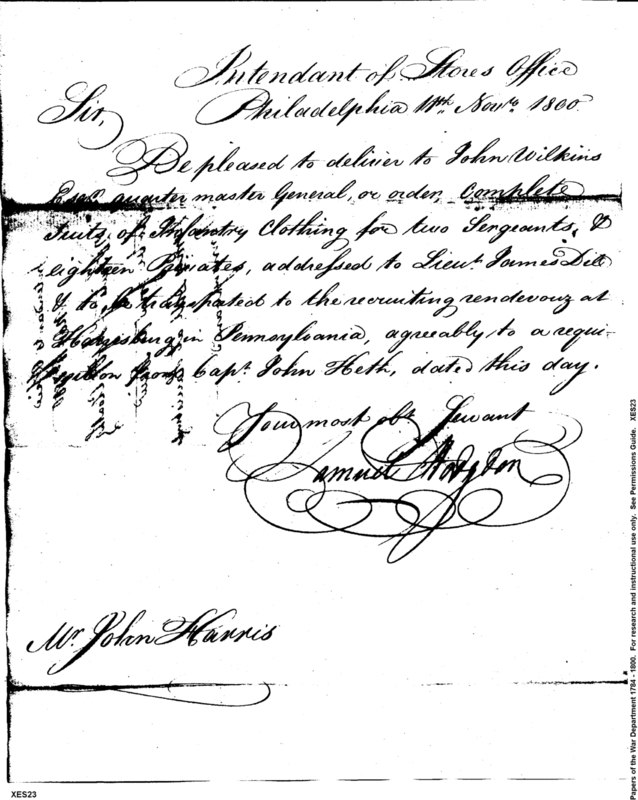 Intendant of Stores Office
Philadelphia 11th. Novr. 1800.
Sir,
Be pleased to deliver to John Wilkins
Esqr. quarter master General, or order, Complete
Suits, of Infantry Clothing for two Sergeants, &
eighteen Privates, addressed to Lieut. James Dill
& to be transported to the recruiting rendevouz at
Harrisburg, in Pennsylvania, agreeably to a requi-
sition from Capt. John Heth, dated this day.
Your most obt. Servant
Samuel Hodgdon
Mr. John Harris
XES23
Papers of the War Department 1784 - 1800. For research and instructional use only. See Permissions Guide. XES23